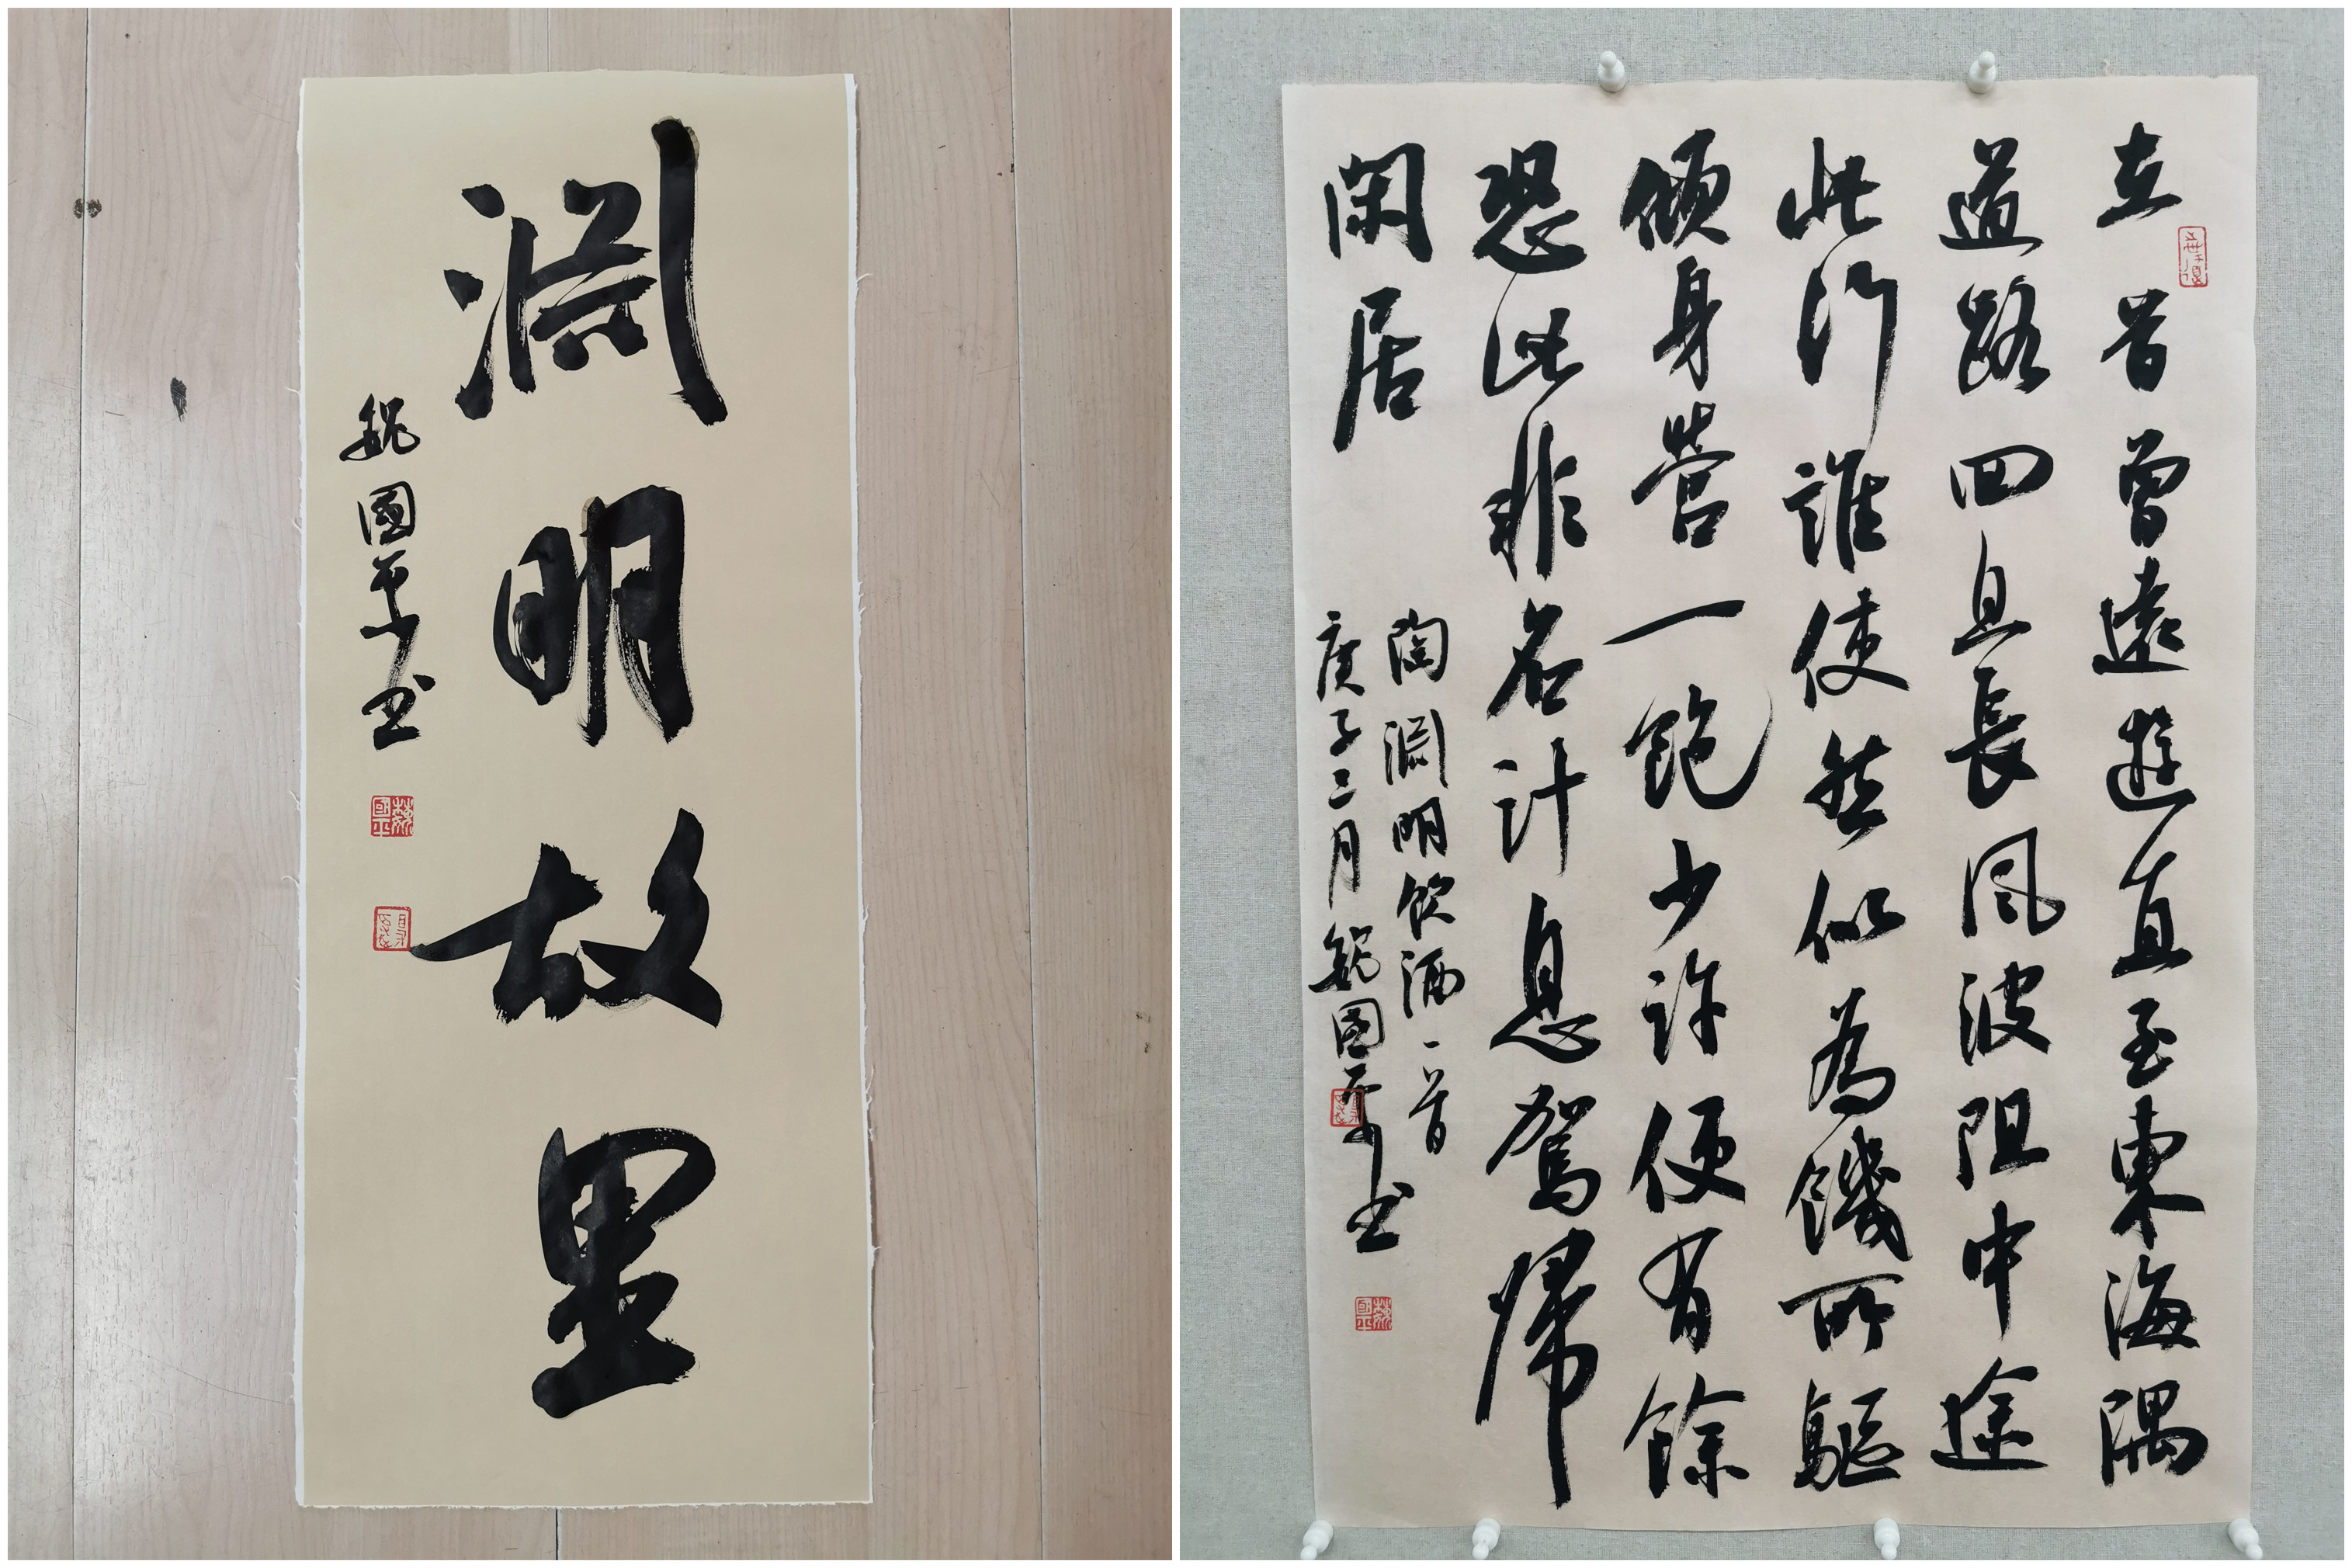 淵明故里
魏國平书
魏國平
在昔曾遠遊直至東海隅
道路回且長風波阻中途
此行誰使然似為饑所驅
傾身營一飽少許便有餘
恐此非名計息駕歸
閑居
陶淵明飲酒一首
庚子三月魏國平书
魏國平